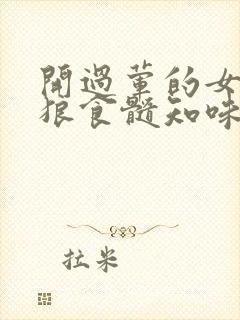 開過葷的女
狠食髓知味
拉米